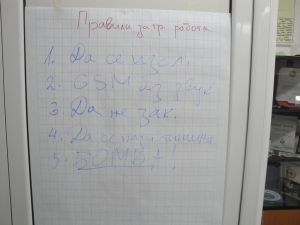 Правила за гр. работа
1. Да се изсл.
2. GSM без звук
3. Да не зак.
4. Да се пази тишина
5. БОМБА